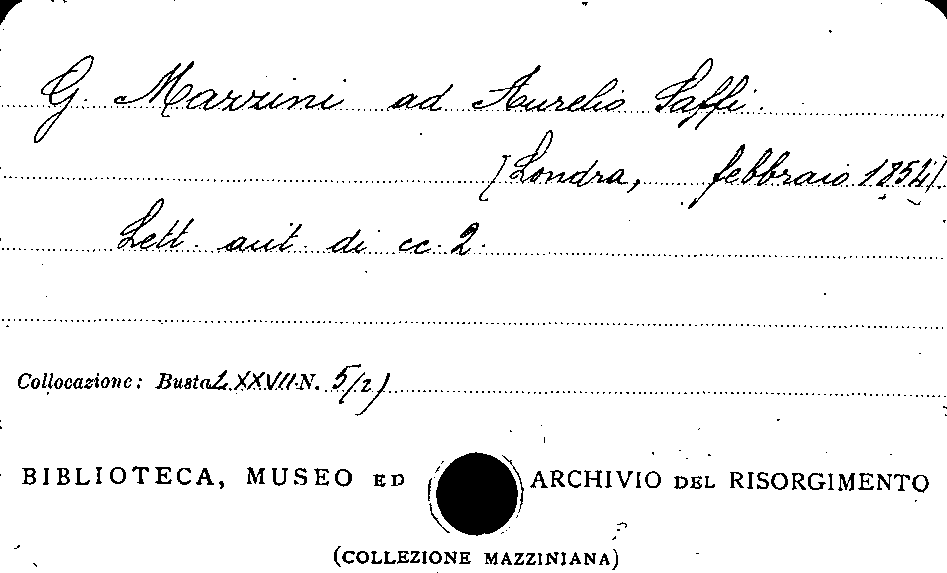 G. Mazzini ad Aurelio Saffi.
[Londra, febbraio 1854]
Lett. aut. di cc. 2.
Collocazione: Busta LXXVII N. 5/2)
BIBLIOTECA, MUSEO ED ARCHIVIO DEL RISORGIMENTO
(COLLEZIONE MAZZINIANA)